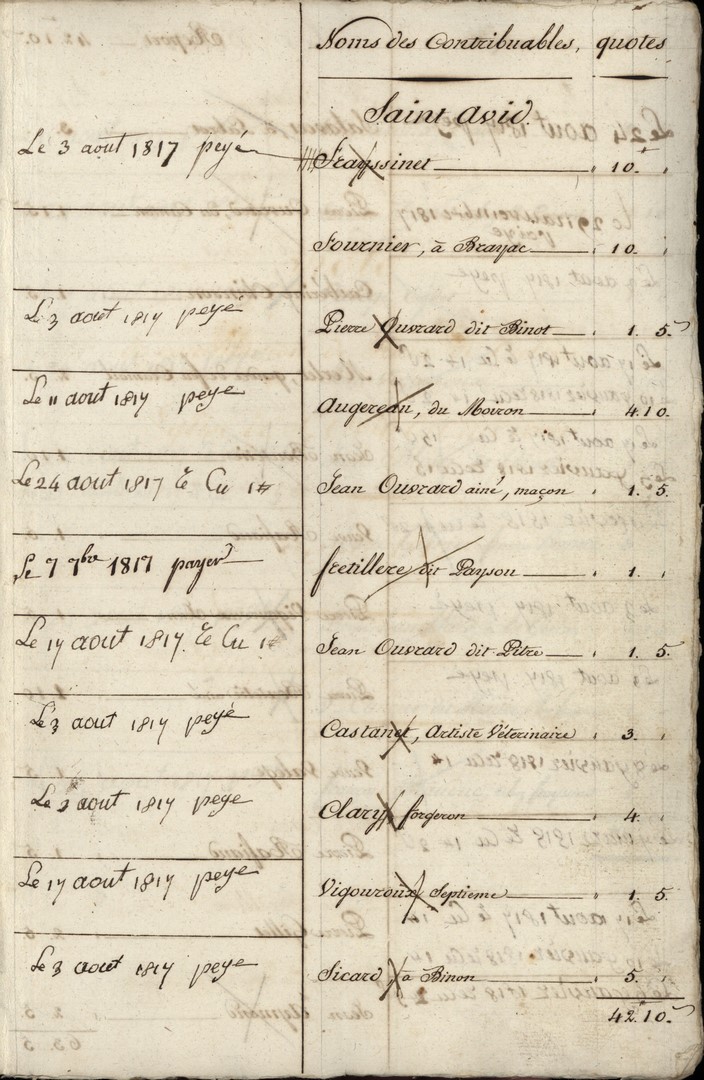 Noms des Contribuables, quotes
Saint Avid.
Le 3 aout 1817 peyé Frayssinet 10.
Fournier, à Brayac 10.
Le 3 aout 1817 peyé Pierre Ouvrard dit Binot 1. 5.
Le 11 aout 1817 peye Augereau, du Moiron 4. 10.
Le 24 aout 1817 Re Cu 1# Jean Ouvrard ainé, maçon 1. 5.
Le 7 7bre 1817 payer fretillere dit Payson 1.
Le 17 aout 1817. Re Cu 1# Jean Ouvrard dit Pitre 1. 5.
Le 3 aout 1817 peyé Castanet, Artiste Véterinaire 3.
Le 3 aout 1817 peye Clary forgeron 4.
Le 17 aout 1817 peye Vigouroux Septieme 1. 5.
Le 3 aout 1817 peye Sicard à Binon 5.
42. 10.